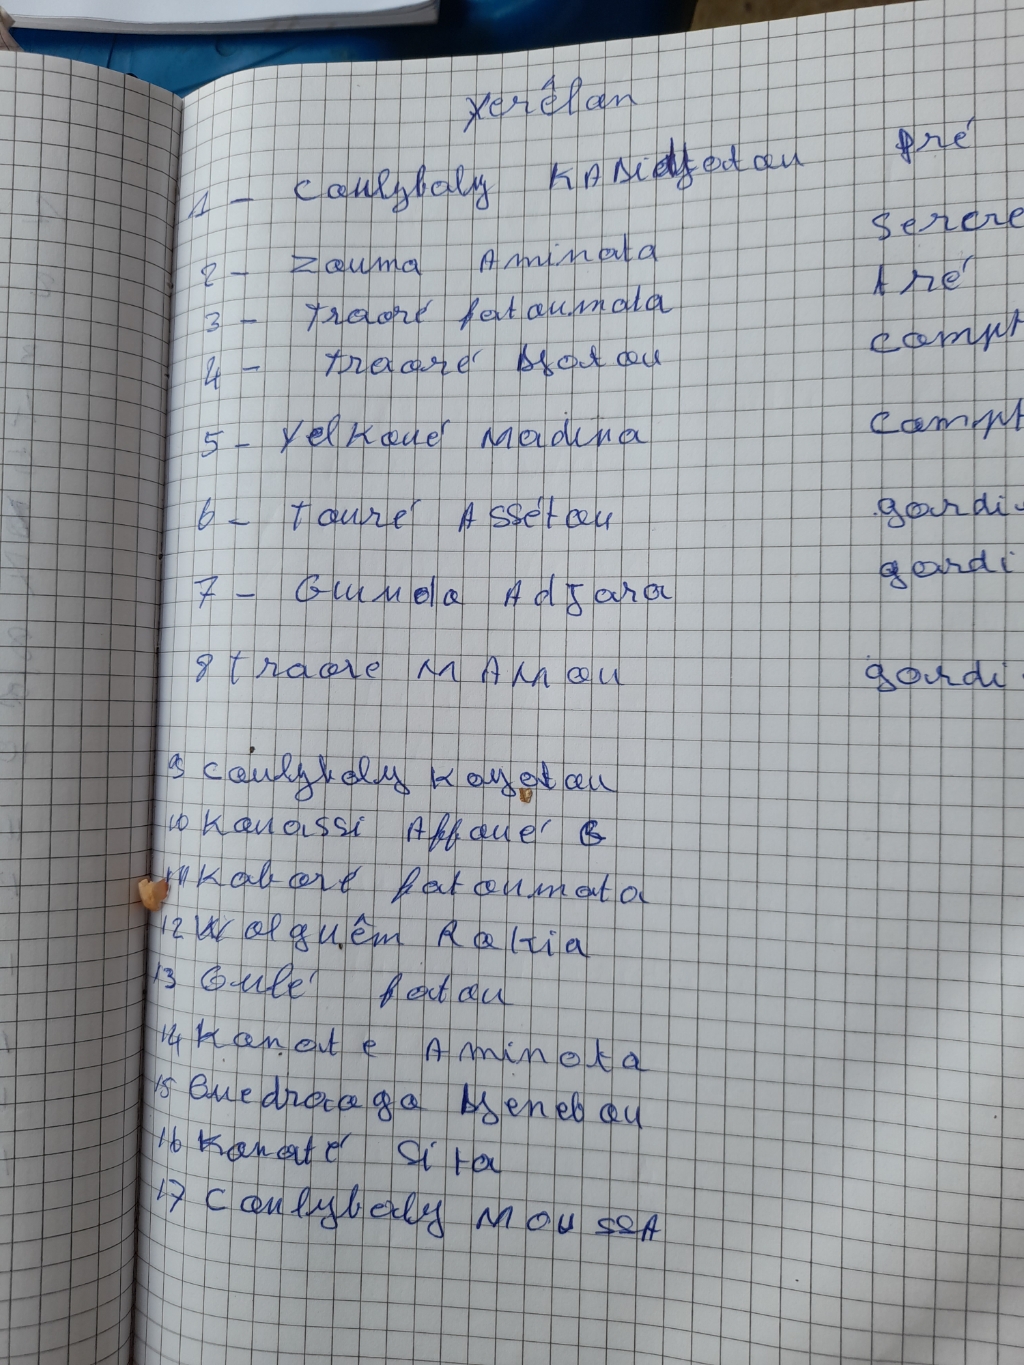 Yerêlon
1 - Coulybaly KANidjatou pré
2 - Zouma Aminata Secre
3 - Traoré fatoumata tré
4 - Traoré Djatou compt
5 - Yelkoué Madina compt
6 - Touré Assétou gardi
7 - Guinda Adjara gardi
8 traore MAMou gardi
9 Coulybaly Koyatou
10 Kouassi Affoué B
11 Kaboré fatoumata
12 Kolguêm Rakia
13 Oulé fatou
14 Kanate Aminata
15 Ouedraogo Djenebou
16 Konaté Sita
17 Coulybaly MOUSSA